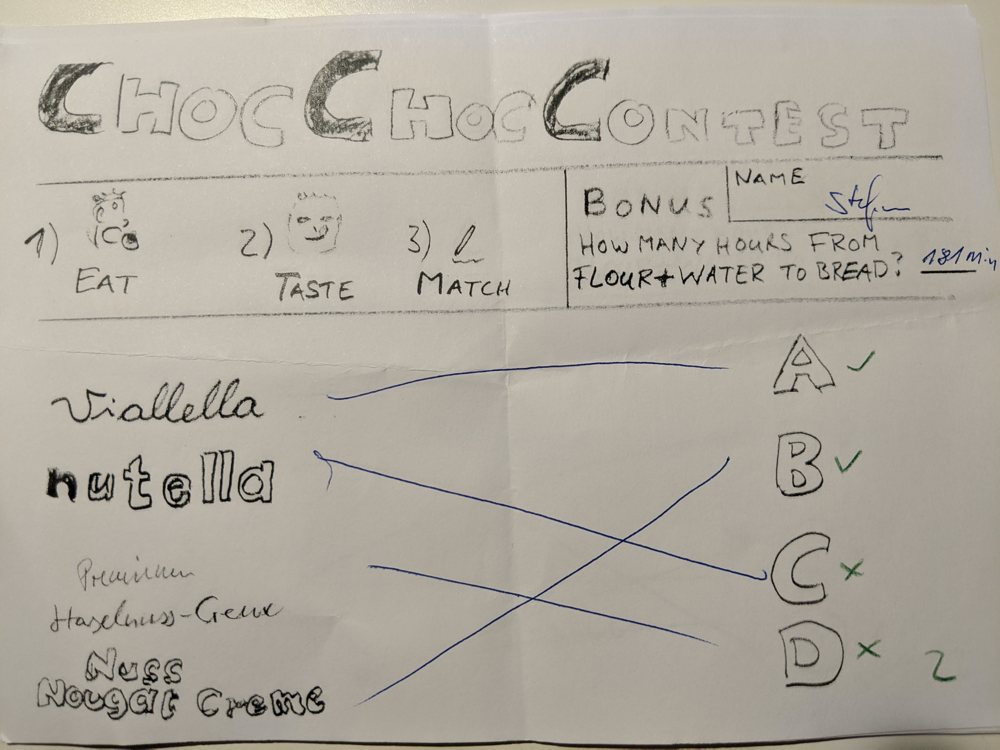 CHOC CHOC CONTEST
1) EAT
2) TASTE
3) MATCH
BONUS
NAME
Stefan
HOW MANY HOURS FROM
FLOUR + WATER TO BREAD? 181 Min
Viallella
nutella
Premium
Haselnuss-Creme
Nuss
Nougat Creme
A ✓
B ✓
C ×
D ×
2